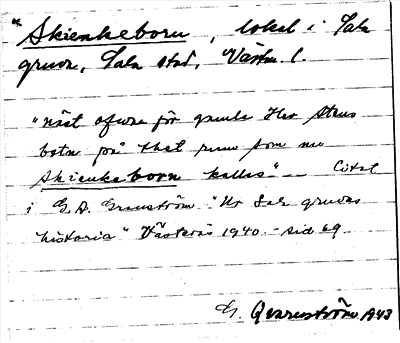 * Skienkeborn, lokal i Sala
gruva, Sala stad, Västm. l.
"näst ofwre för gamle Her Stens
botn på thet rum som nu
Skienkeborn kalles" - Citat
i G. A. Granström "Ur Sala gruvas
historia" Västerås 1940 - sid 69
G. Qvarnström 1943